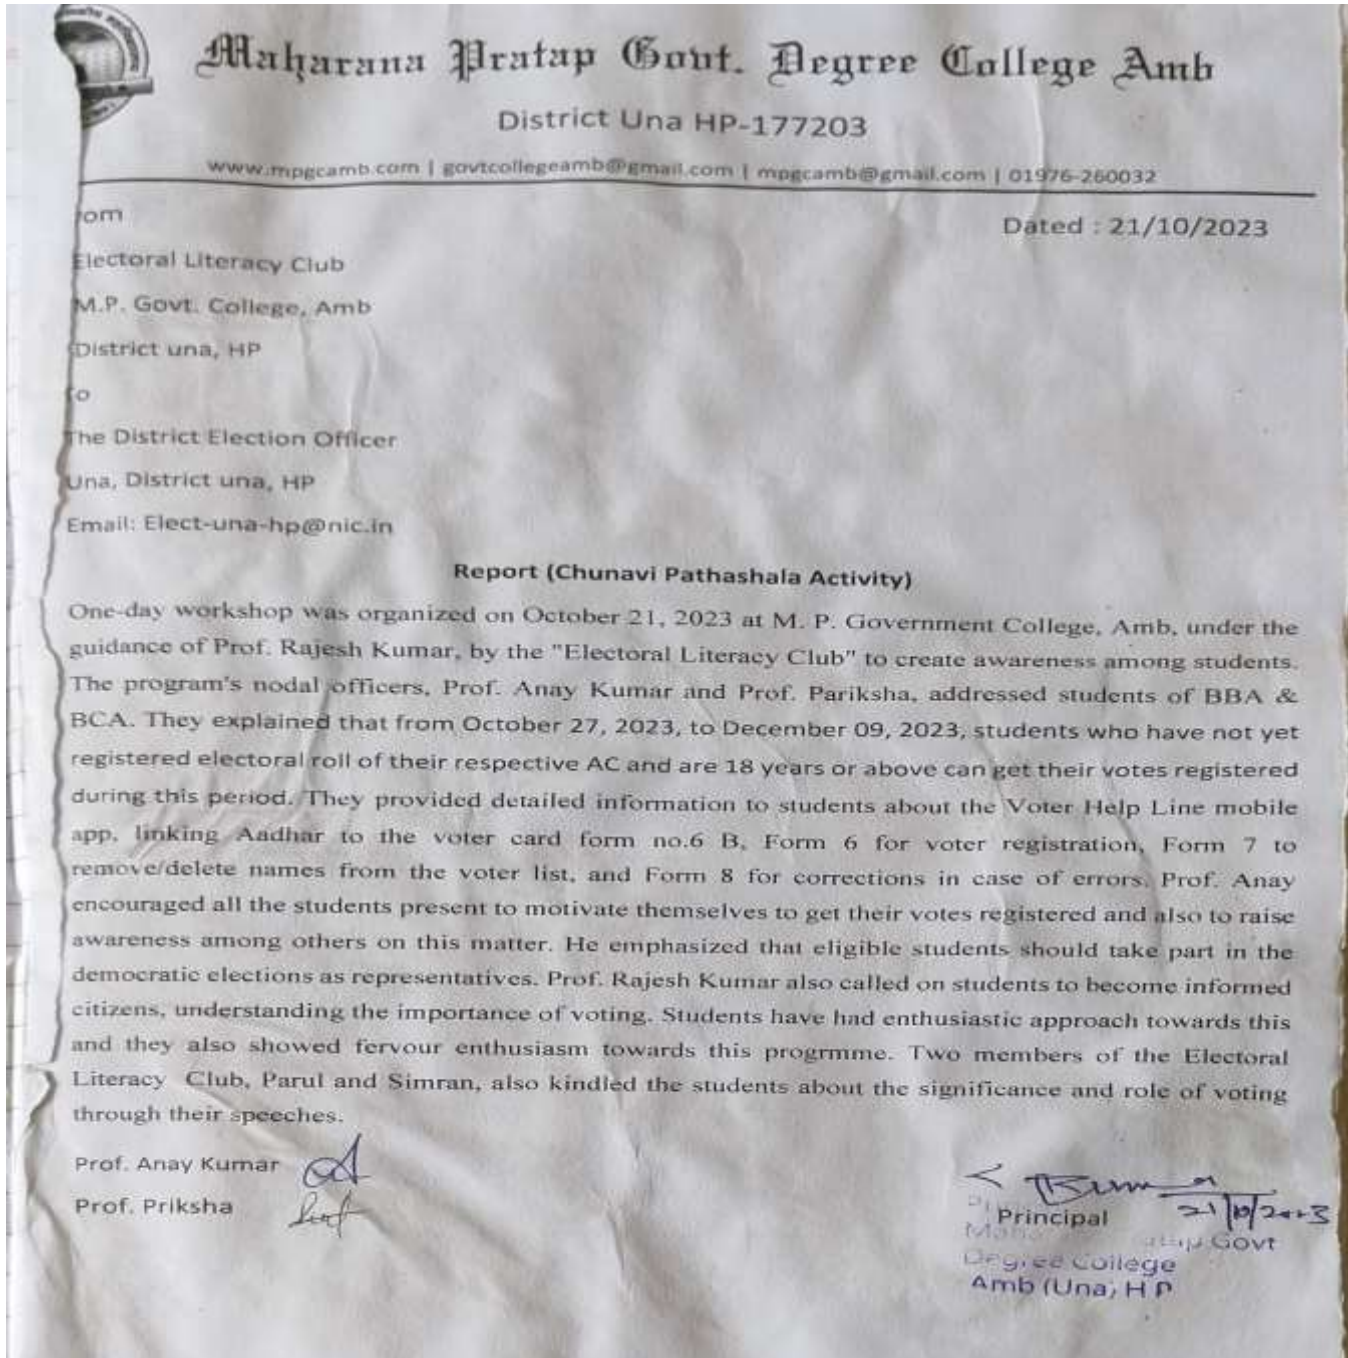 Maharana Pratap Govt. Degree College Amb
District Una HP-177203
www.mpgcamb.com | govtcollegeamb@gmail.com | mpgcamb@gmail.com | 01976-260032
rom
Dated : 21/10/2023
Electoral Literacy Club
M.P. Govt. College, Amb
District una, HP
To
The District Election Officer
Una, District una, HP
Email: Elect-una-hp@nic.in
Report (Chunavi Pathashala Activity)
One-day workshop was organized on October 21, 2023 at M. P. Government College, Amb, under the
guidance of Prof. Rajesh Kumar, by the "Electoral Literacy Club" to create awareness among students.
The program's nodal officers, Prof. Anay Kumar and Prof. Pariksha, addressed students of BBA &
BCA. They explained that from October 27, 2023, to December 09, 2023, students who have not yet
registered electoral roll of their respective AC and are 18 years or above can get their votes registered
during this period. They provided detailed information to students about the Voter Help Line mobile
app, linking Aadhar to the voter card form no.6 B, Form 6 for voter registration, Form 7 to
remove/delete names from the voter list, and Form 8 for corrections in case of errors. Prof. Anay
encouraged all the students present to motivate themselves to get their votes registered and also to raise
awareness among others on this matter. He emphasized that eligible students should take part in the
democratic elections as representatives. Prof. Rajesh Kumar also called on students to become informed
citizens, understanding the importance of voting. Students have had enthusiastic approach towards this
and they also showed fervour enthusiasm towards this progrmme. Two members of the Electoral
Literacy Club, Parul and Simran, also kindled the students about the significance and role of voting
through their speeches.
Prof. Anay Kumar
Prof. Priksha
21/10/2023
Principal
Govt
Degree College
Amb (Una) H P